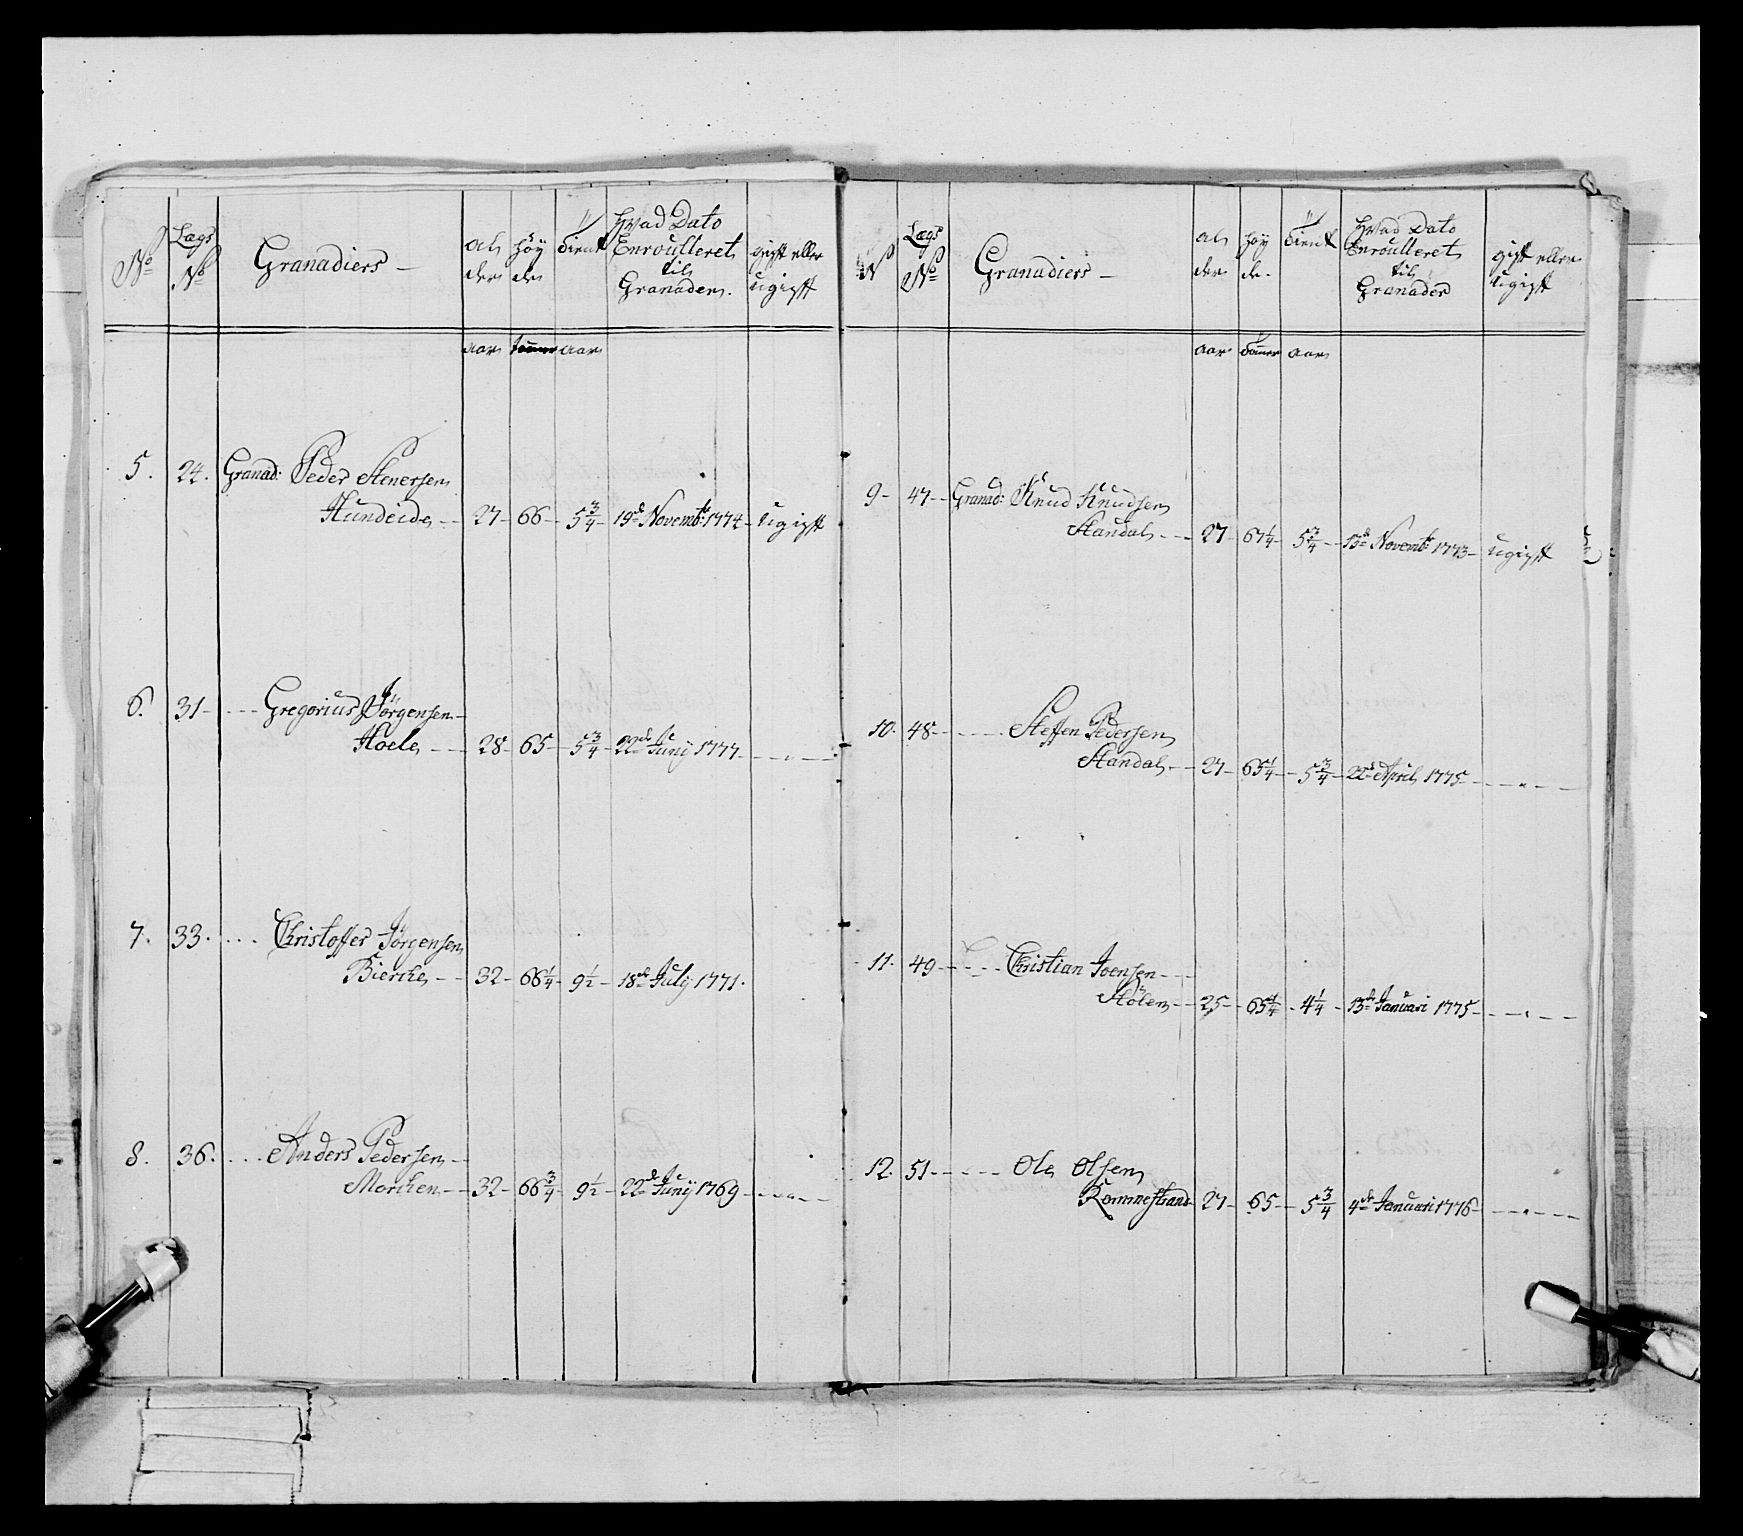 No Lægs No Granadiers – alder høyde tient Hvad Dato Enroulleret til Granader. gift eller ugift
aar tommer aar
5. 24. Granad: Peder Stenersen
Hundeide – 27 – 66 – 5 3/4 – 19de Novembr: 1774 – ugift
6. 31 – – – – Gregorius Jørgensen –
Hoele – – 28 – 65 – 5 3/4 – 22de Junij 1777 – – – " – –
7. 33. . . . . Christoffer Jørgensen
Biercke – – 32 – 66 1/4 – 9 1/2 – 18de July 1771.
8. 36. . . . . Anders Pedersen –
Morcken – – 32 – 66 3/4 – 9 1/2 – 22de Junij 1769 – – – " – –
N Lægs No Granadiers – alder høyde. tient Hvad Dato Enroulleret til Granader gift eller ugift
aar tommer aar
9 – 47 – – Granad: Knud Knudsen
Standal – – – 27 – 67 1/4 – 5 3/4 – 13de Novembr 1773 – ugift
10. 48 – – – – – Steffen Pedersen
Standal – – 27 – 65 1/4 – 5 3/4 – 22de April 1775 – – – " – –
11. 49 – – – – Christian Joensen – – –
Stølen – – 25 – 65 1/4 – 4 1/4 – 13de Januari 1775 – – – " – –
12. 51 – – – – – Ole Olsen
Rommestrand – 27 – 65 – 5 3/4 – 4de Januari 1776 – – – " – –